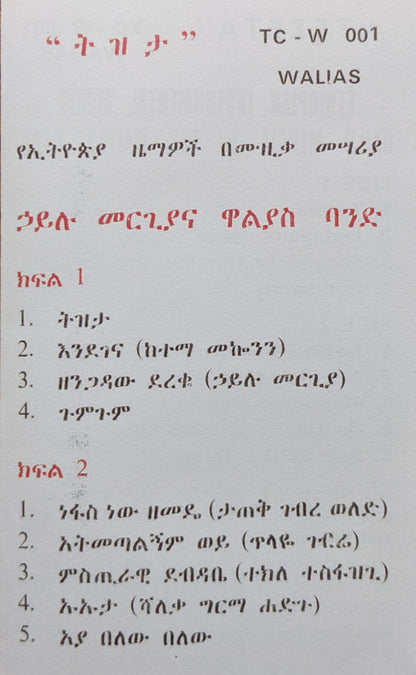 “ ትዝታ ” TC - W 001
WALIAS
የኢትዮጵያ ዜማዎች በሙዚቃ መሣሪያ
ኃይሉ መርጊያና ዋልያስ ባንድ
ክፍል 1
1. ትዝታ
2. እንደገና (ከተማ መኰንን)
3. ዘንጋዳው ደረቁ (ኃይሉ መርጊያ)
4. ጉምጉም
ክፍል 2
1. ነፋስ ነው ዘመዴ (ታጠቅ ገብረ ወለድ)
2. አትመጣልኝም ወይ (ጥላዬ ገብሬ)
3. ምስጢራዊ ደብዳቤ (ተክለ ተስፋዝጊ)
4. ኡኡታ (ሻለቃ ግርማ ሐድጉ)
5. አያ በለው በለው